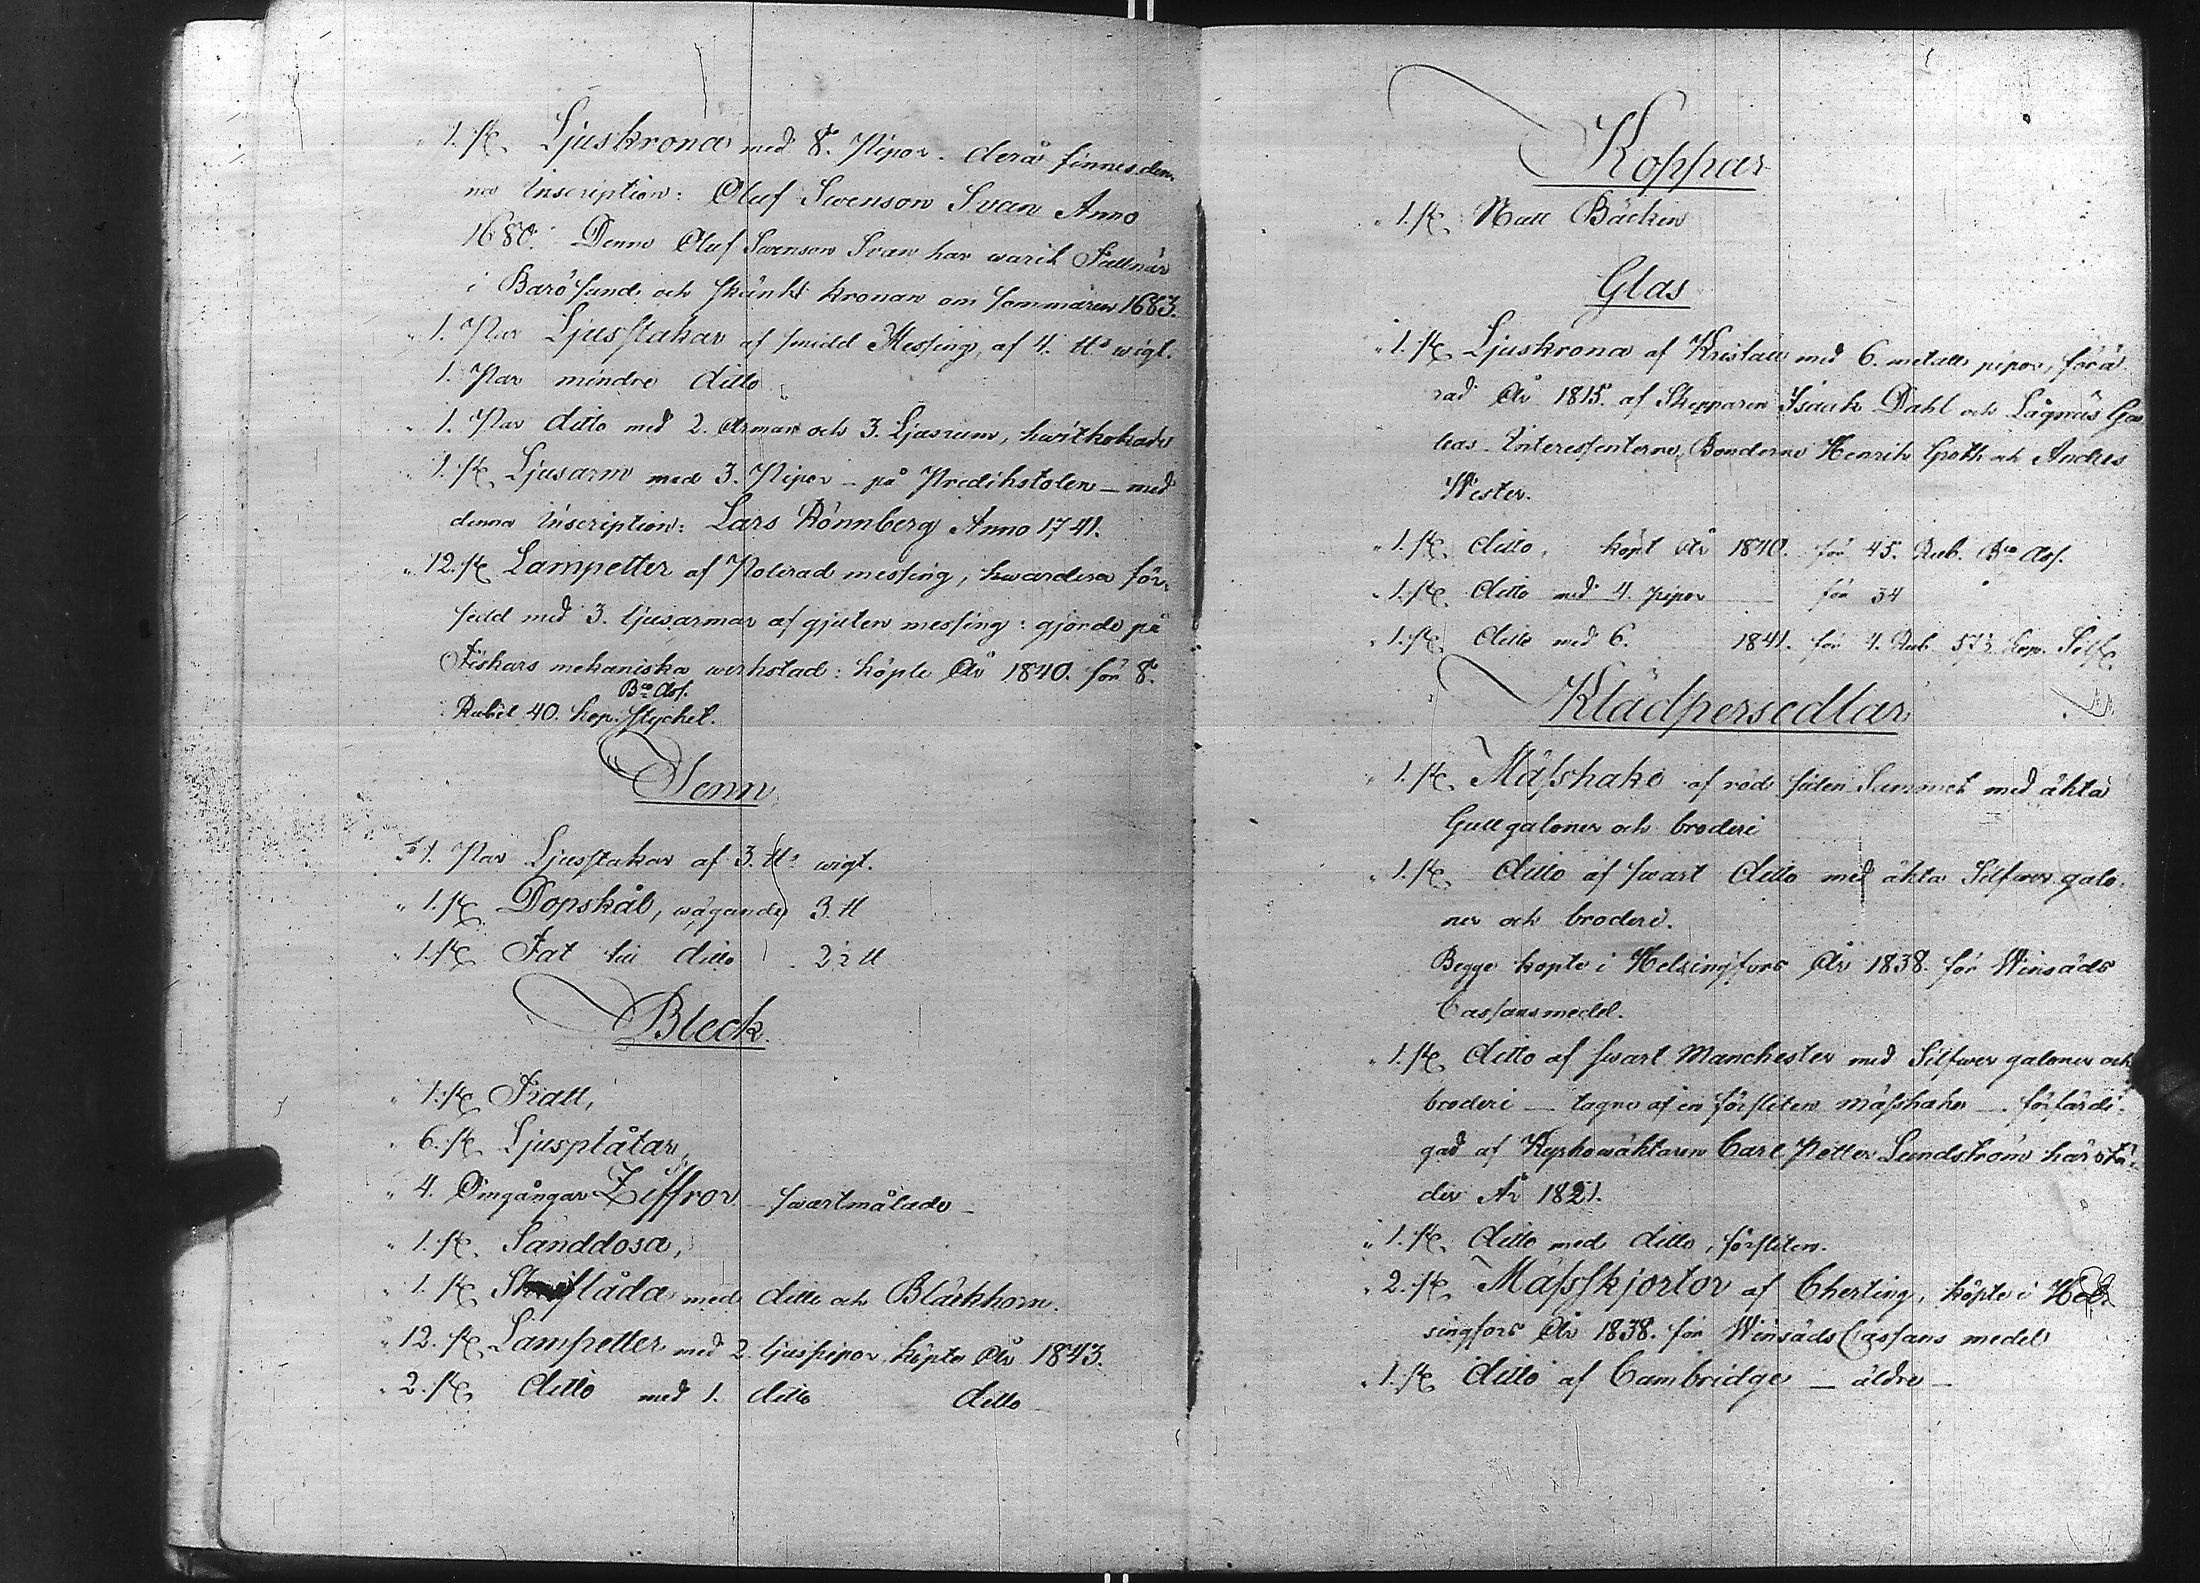 1. st. Ljuskrona med 8. Pipor. derå finnes den-
na Inscription: Oluf Swenson Svan Anno
1680. Denne Oluf Swenson Svan har warit Tullnär
i Barösund och skänkt kronan om sommaren 1683.
1. Par Ljusstakar af smidd Messing, af 4. ℔s wigt.
1. Par mindre ditto
1. Par ditto med 2. Armar och 3. Ljusrum, hwitkokade
1. st. Ljusarm med 3. Pipor – på Predikstolen – med
denna Inscription: Lars Rönnberg Anno 1741.
12. st. Lampetter af Polerad messing, hwardera för-
sedd med 3. ljusarmar af gjuten messing: gjorde på
Fiskars mekaniska werkstad: köpte År 1840. för 8.
Rubel 40. kop. Bco Ass. stycket.
Tenn
1. Par Ljusstakar af 3. ℔s wigt.
1. st. Dopskål, wägande 3. ℔
1. st. Fat till ditto 2½ ℔
Bleck.
1. st. Tratt,
6. st. Ljusplåtar,
4. Omgångar Ziffror – swartmålade –
1. st. Sanddosa,
1. st. låda med ditto och Bläckhorn.
12. st. Lampetter med 2. ljuspipor, köpte År 1843.
2. st. ditto med 1. ditto ditto
Koppar
1. st. Natt Bäcken
Glas
1. st. Ljuskrona af Kristall med 6. metall pipor, förä-
rad År 1815. af Skepparen Isack Dahl och Lågnäs
leas Interessenterne, Bönderne Henrik Groth och Andrs
Wester.
1. st. ditto, köpt År 1840. för 45. Rub. Bco Ass.
1. st. ditto med 4. pipor för 34
1. st. ditto med 6. 1841. för 4. Rub. 57½ kop. Silfr
Klädpersedlar
1. st. Mässhake af röd siden Sammet med äkta
Gull galoner och broderi
1. st. ditto af swart ditto med äkta Silfwer galo-
ner och broderi.
Begge köpte i Helsingfors År 1838. för Winsäds
Cassans medel.
1. st. ditto af swart Manchester med Silfwer galoner och
broderi – tagne af en försliten mässhake – förfärdi-
gad af Kyrkowäktaren Carl Petter Lundström härstä-
des År 1821.
1. st. ditto med ditto, försliten.
2. st. Mässskjortor af Cherting, köpte i Hel-
singfors År 1838. för Winsäds Cassans medel
1. st. ditto af Cambridge – äldre –